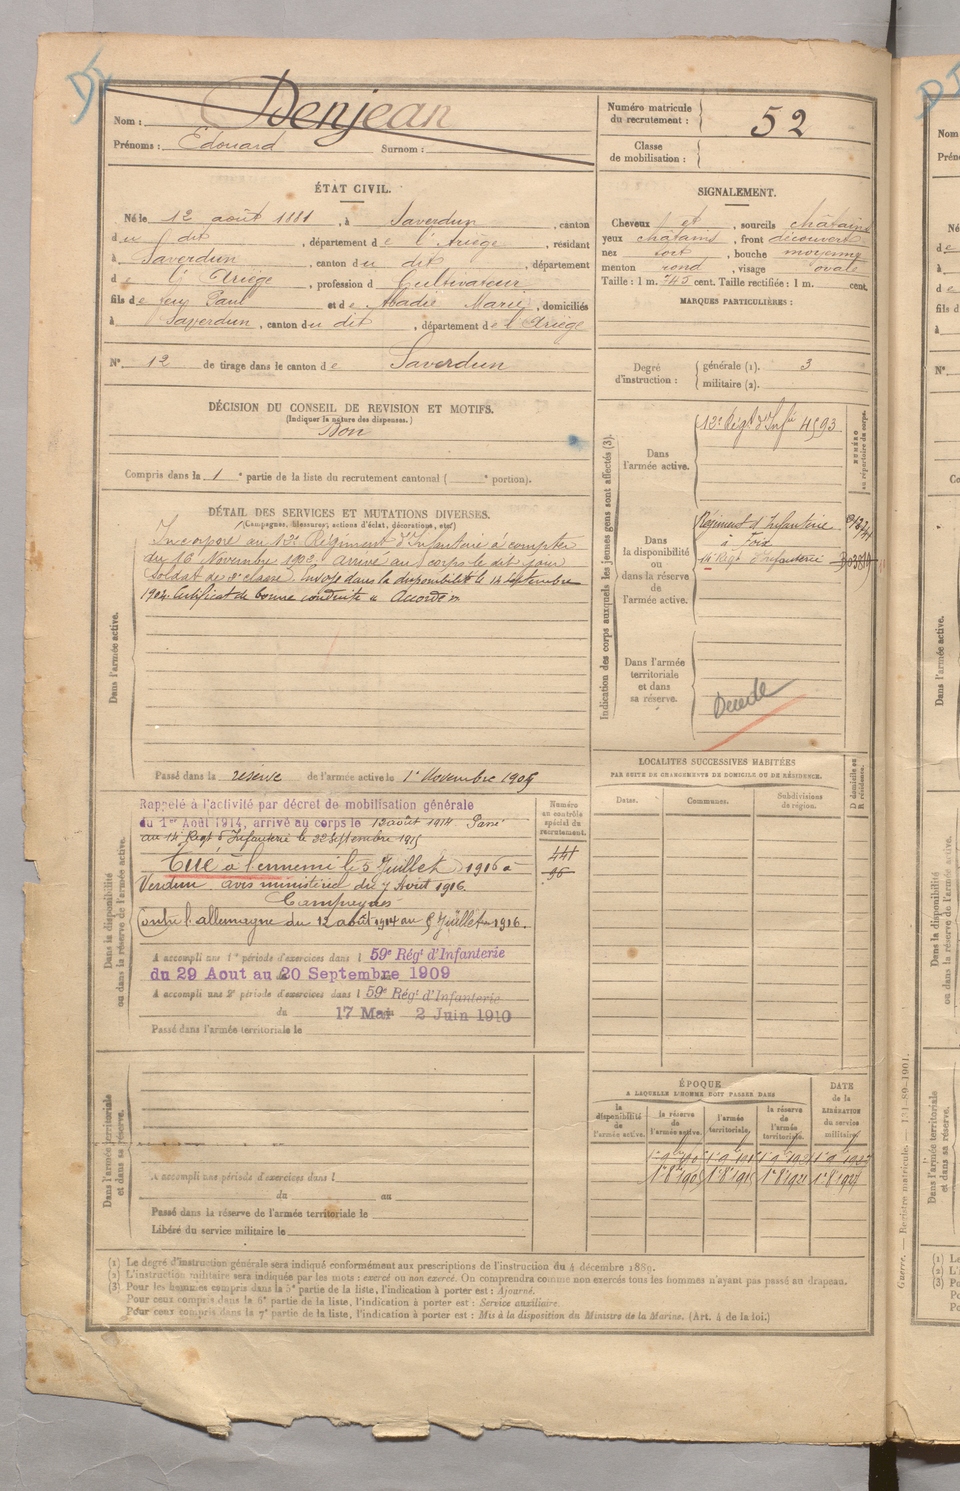 Nom : Denjean
Prénoms : Edouard Surnom :
Numéro matricule du recrutement : 52
Classe de mobilisation :
ÉTAT CIVIL.
Né le 12 août 1881, à Saverdun, canton
du dit, département de l'Ariège, résidant
à Saverdun, canton du dit, département
de l'Ariège, profession de Cultivateur
fils de feu Paul et de Abadie Marie, domiciliés
à Saverdun, canton du dit, département de l'Ariège
N° 12 de tirage dans le canton de Saverdun
SIGNALEMENT.
Cheveux et, sourcils châtains
yeux châtains, front découvert
nez fort, bouche moyenne
menton rond, visage ovale
Taille : 1 m. 745 cent. Taille rectifiée : 1 m. cent.
MARQUES PARTICULIÈRES :
Degré d'instruction : générale (1). 3
militaire (2).
DÉCISION DU CONSEIL DE REVISION ET MOTIFS.
(Indiquer la nature des dispenses.)
Bon
Compris dans la 1e partie de la liste du recrutement cantonal ( e portion).
DÉTAIL DES SERVICES ET MUTATIONS DIVERSES.
(Campagnes, blessures, actions d'éclat, décorations, etc.)
Dans l'armée active.
Incorporé au 12e Régiment d'Infanterie à compter
du 16 Novembre 1902. Arrivé au corps le dit jour
Soldat de 2e classe. Envoyé dans la disponibilité le 14 Septembre
1904. Certificat de bonne conduite "Accordé".
Passé dans la réserve de l'armée active le 1er Novembre 1905
Indication des corps auxquels les jeunes gens sont affectés (3).
NUMÉRO au répertoire du corps.
Dans l'armée active.
12e Régt d'Infie 4593
Dans la disponibilité ou dans la réserve de l'armée active.
Régiment d'Infanterie
à Foix
14e Régt d'Infanterie
Dans l'armée territoriale et dans sa réserve.
Décédé
Dans la disponibilité ou dans la réserve de l'armée active.
Numéro au contrôle spécial du recrutement.
Rappelé à l'activité par décret de mobilisation générale
du 1er Août 1914, arrivé au corps le 12 août 1914 Passé
au 14e Régt d'Infanterie le Septembre 1915
Tué à l'ennemi le 5 Juillet 1916 à
Verdun avis ministériel du 7 Août 1916.
Campagnes
Contre l'allemagne du 12 août 1914 au 5 Juillet 1916.
A accompli une 1e période d'exercices dans l 59e Régt d'Infanterie
du 29 Aout au 20 Septembre 1909
A accompli une 2e période d'exercices dans l 59e Régt d'Infanterie
du 17 Mai au 2 Juin 1910
Passé dans l'armée territoriale le
LOCALITÉS SUCCESSIVES HABITÉES
PAR SUITE DE CHANGEMENTS DE DOMICILE OU DE RÉSIDENCE.
Dates. Communes. Subdivisions de région. D domicile ou R résidence.
Dans l'armée territoriale et dans sa réserve.
A accompli une période d'exercices dans l
du au
Passé dans la réserve de l'armée territoriale le
Libéré du service militaire le
ÉPOQUE
A LAQUELLE L'HOMME DOIT PASSER DANS
la disponibilité de l'armée active. la réserve de l'armée active. l'armée territoriale. la réserve de l'armée territoriale.
DATE de la LIBÉRATION du service militaire.
(1) Le degré d'instruction générale sera indiqué conformément aux prescriptions de l'instruction du 4 décembre 1889.
(2) L'instruction militaire sera indiquée par les mots : exercé ou non exercé. On comprendra comme non exercés tous les hommes n'ayant pas passé au drapeau.
(3) Pour les hommes compris dans la 5e partie de la liste, l'indication à porter est : Ajourné.
Pour ceux compris dans la 6e partie de la liste, l'indication à porter est : Service auxiliaire.
Pour ceux compris dans la 7e partie de la liste, l'indication à porter est : Mis à la disposition du Ministre de la Marine. (Art. 4 de la loi.)